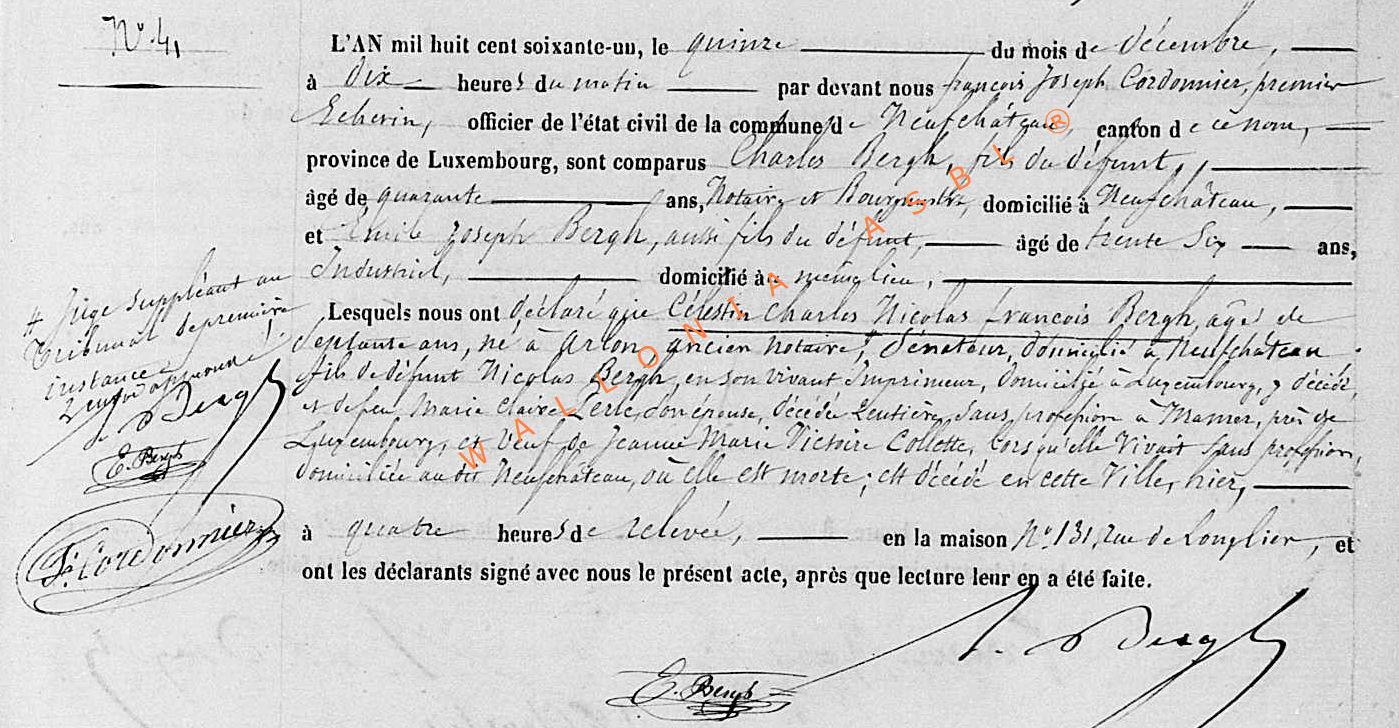 N.° 41
L'AN mil huit cent soixante-un, le quinze du mois de décembre,
à dix heures du matin par devant nous françois Joseph Cordonnier, premier
Echevin, officier de l'état civil de la commune de Neufchâteau, canton de ce nom,
province de Luxembourg, sont comparus Charles Bergh, fils du défunt,
âgé de quarante ans, Notaire et Bourgmestre, domicilié à Neufchâteau,
et Emile Joseph Bergh, aussi fils du défunt, âgé de trente Six ans,
Industriel, domicilié au même lieu,
Lesquels nous ont déclaré que Célestin Charles Nicolas françois Bergh, agé de
septante ans, né à Arlon, ancien Notaire, #, Sénateur, domicilié à Neufchâteau
fils de défunt Nicolas Bergh, en son vivant Imprimeur, domicilié à Luxembourg, y décédé,
et de feu Marie Claire décédé Rentière, Sans profession à Mamer, près de
Luxembourg, et Veuf de Jeanne Marie Victoire Collette, lorsqu'elle Vivait Sans profession,
domiciliée au dit Neufchâteau, où elle est morte; est décédé en cette Ville, hier,
à quatre heures de relevée, en la maison N.° 131, rue de Longlier, et
ont les déclarants signé avec nous le présent acte, après que lecture leur en a été faite.
# Juge Suppléant au
Tribunal de première
instance
Bergh
E. Bergh
Cordonnier
Bergh
E. Bergh
WALLONIA ASBL ®